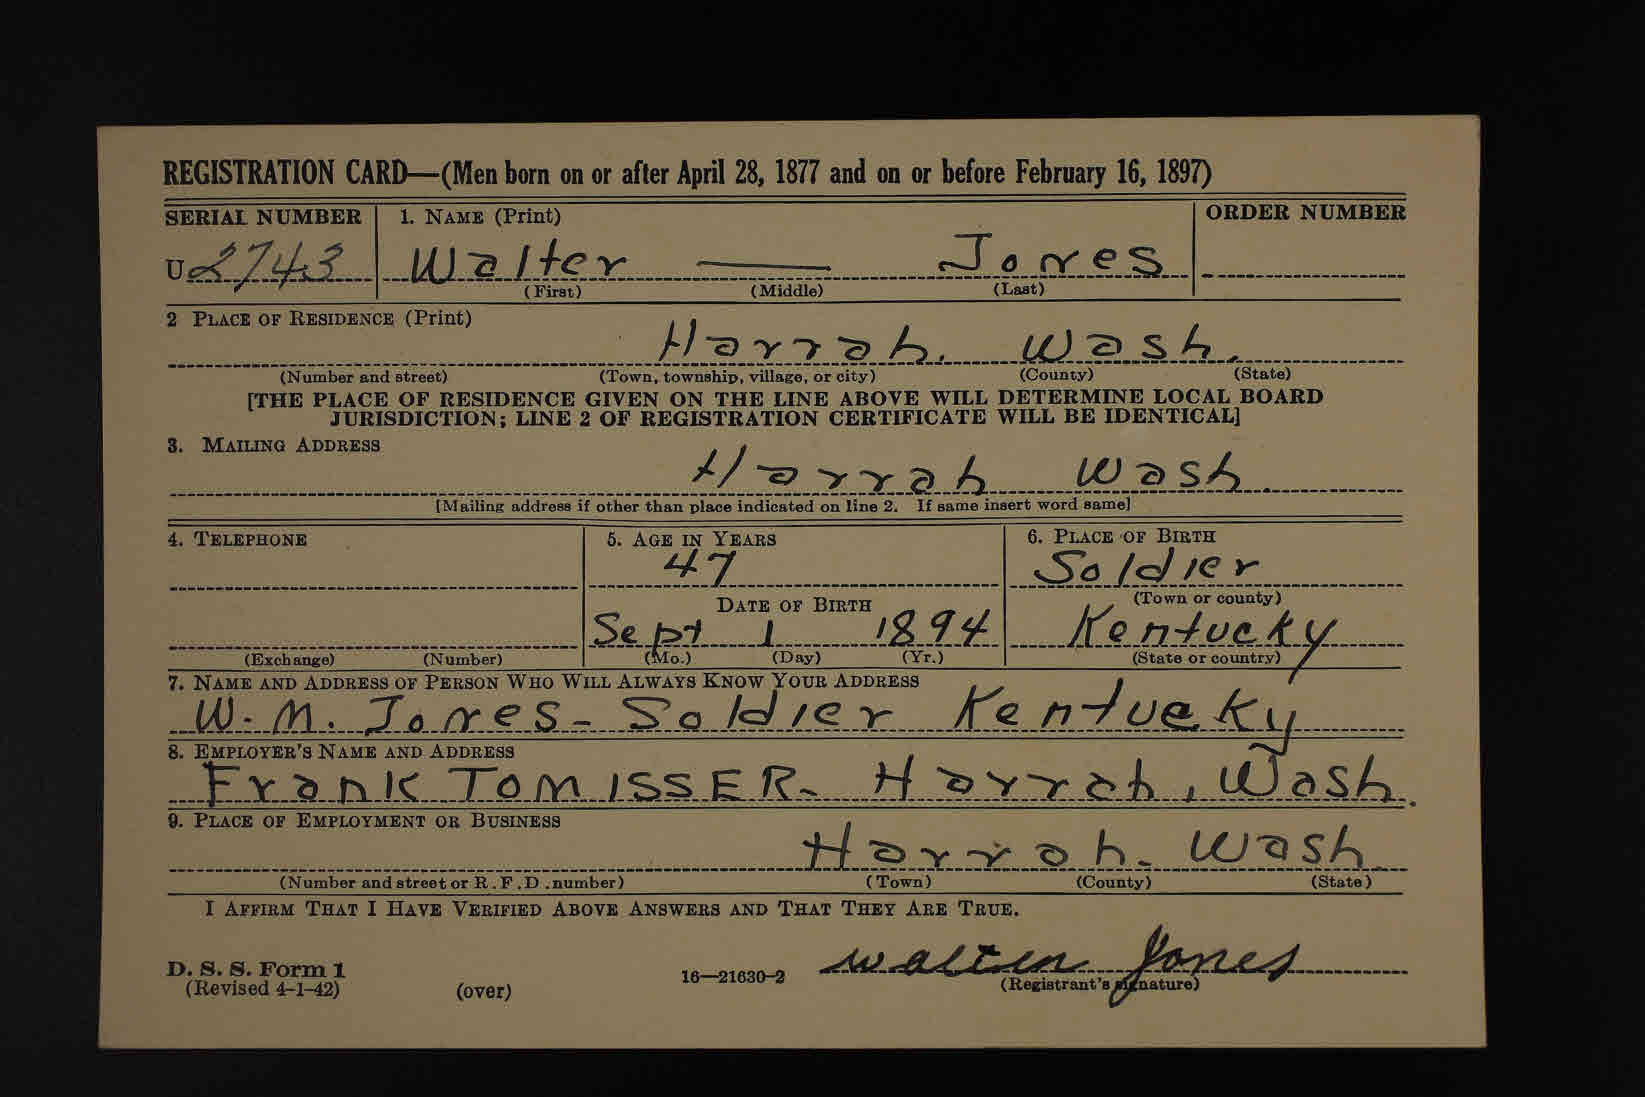 REGISTRATION CARD—(Men born on or after April 28, 1877 and on or before February 16, 1897)
SERIAL NUMBER 1. NAME (Print) ORDER NUMBER
U 2743 Walter —— Jones
(First) (Middle) (Last)
2 PLACE OF RESIDENCE (Print)
Harrah. Wash.
(Number and street) (Town, township, village, or city) (County) (State)
[THE PLACE OF RESIDENCE GIVEN ON THE LINE ABOVE WILL DETERMINE LOCAL BOARD
JURISDICTION; LINE 2 OF REGISTRATION CERTIFICATE WILL BE IDENTICAL]
3. MAILING ADDRESS
Harrah Wash.
[Mailing address if other than place indicated on line 2. If same insert word same]
4. TELEPHONE 5. AGE IN YEARS 6. PLACE OF BIRTH
47 Soldier
DATE OF BIRTH (Town or county)
Sept 1 1894 Kentucky
(Exchange) (Number) (Mo.) (Day) (Yr.) (State or country)
7. NAME AND ADDRESS OF PERSON WHO WILL ALWAYS KNOW YOUR ADDRESS
W. M. Jones - Soldier Kentucky
8. EMPLOYER'S NAME AND ADDRESS
Frank TOMISSER - Harrah, Wash.
9. PLACE OF EMPLOYMENT OR BUSINESS
Harrah - Wash.
(Number and street or R. F. D. number) (Town) (County) (State)
I AFFIRM THAT I HAVE VERIFIED ABOVE ANSWERS AND THAT THEY ARE TRUE.
D. S. S. Form 1 16—21630-2 Walter Jones
(Revised 4-1-42) (over) (Registrant's signature)